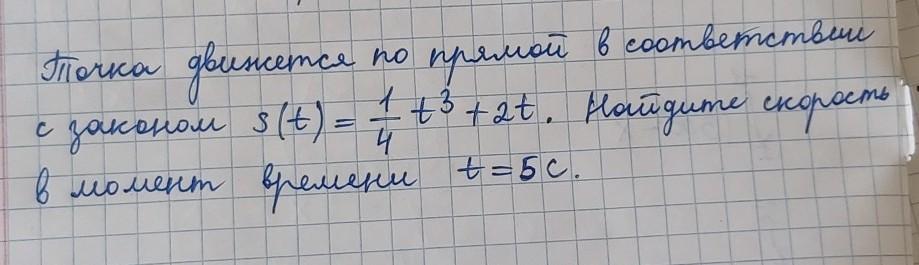 Точка движется по прямой в соответствии
с законом s(t) = 1/4 t³ + 2t. Найдите скорость
в момент времени t = 5 с.